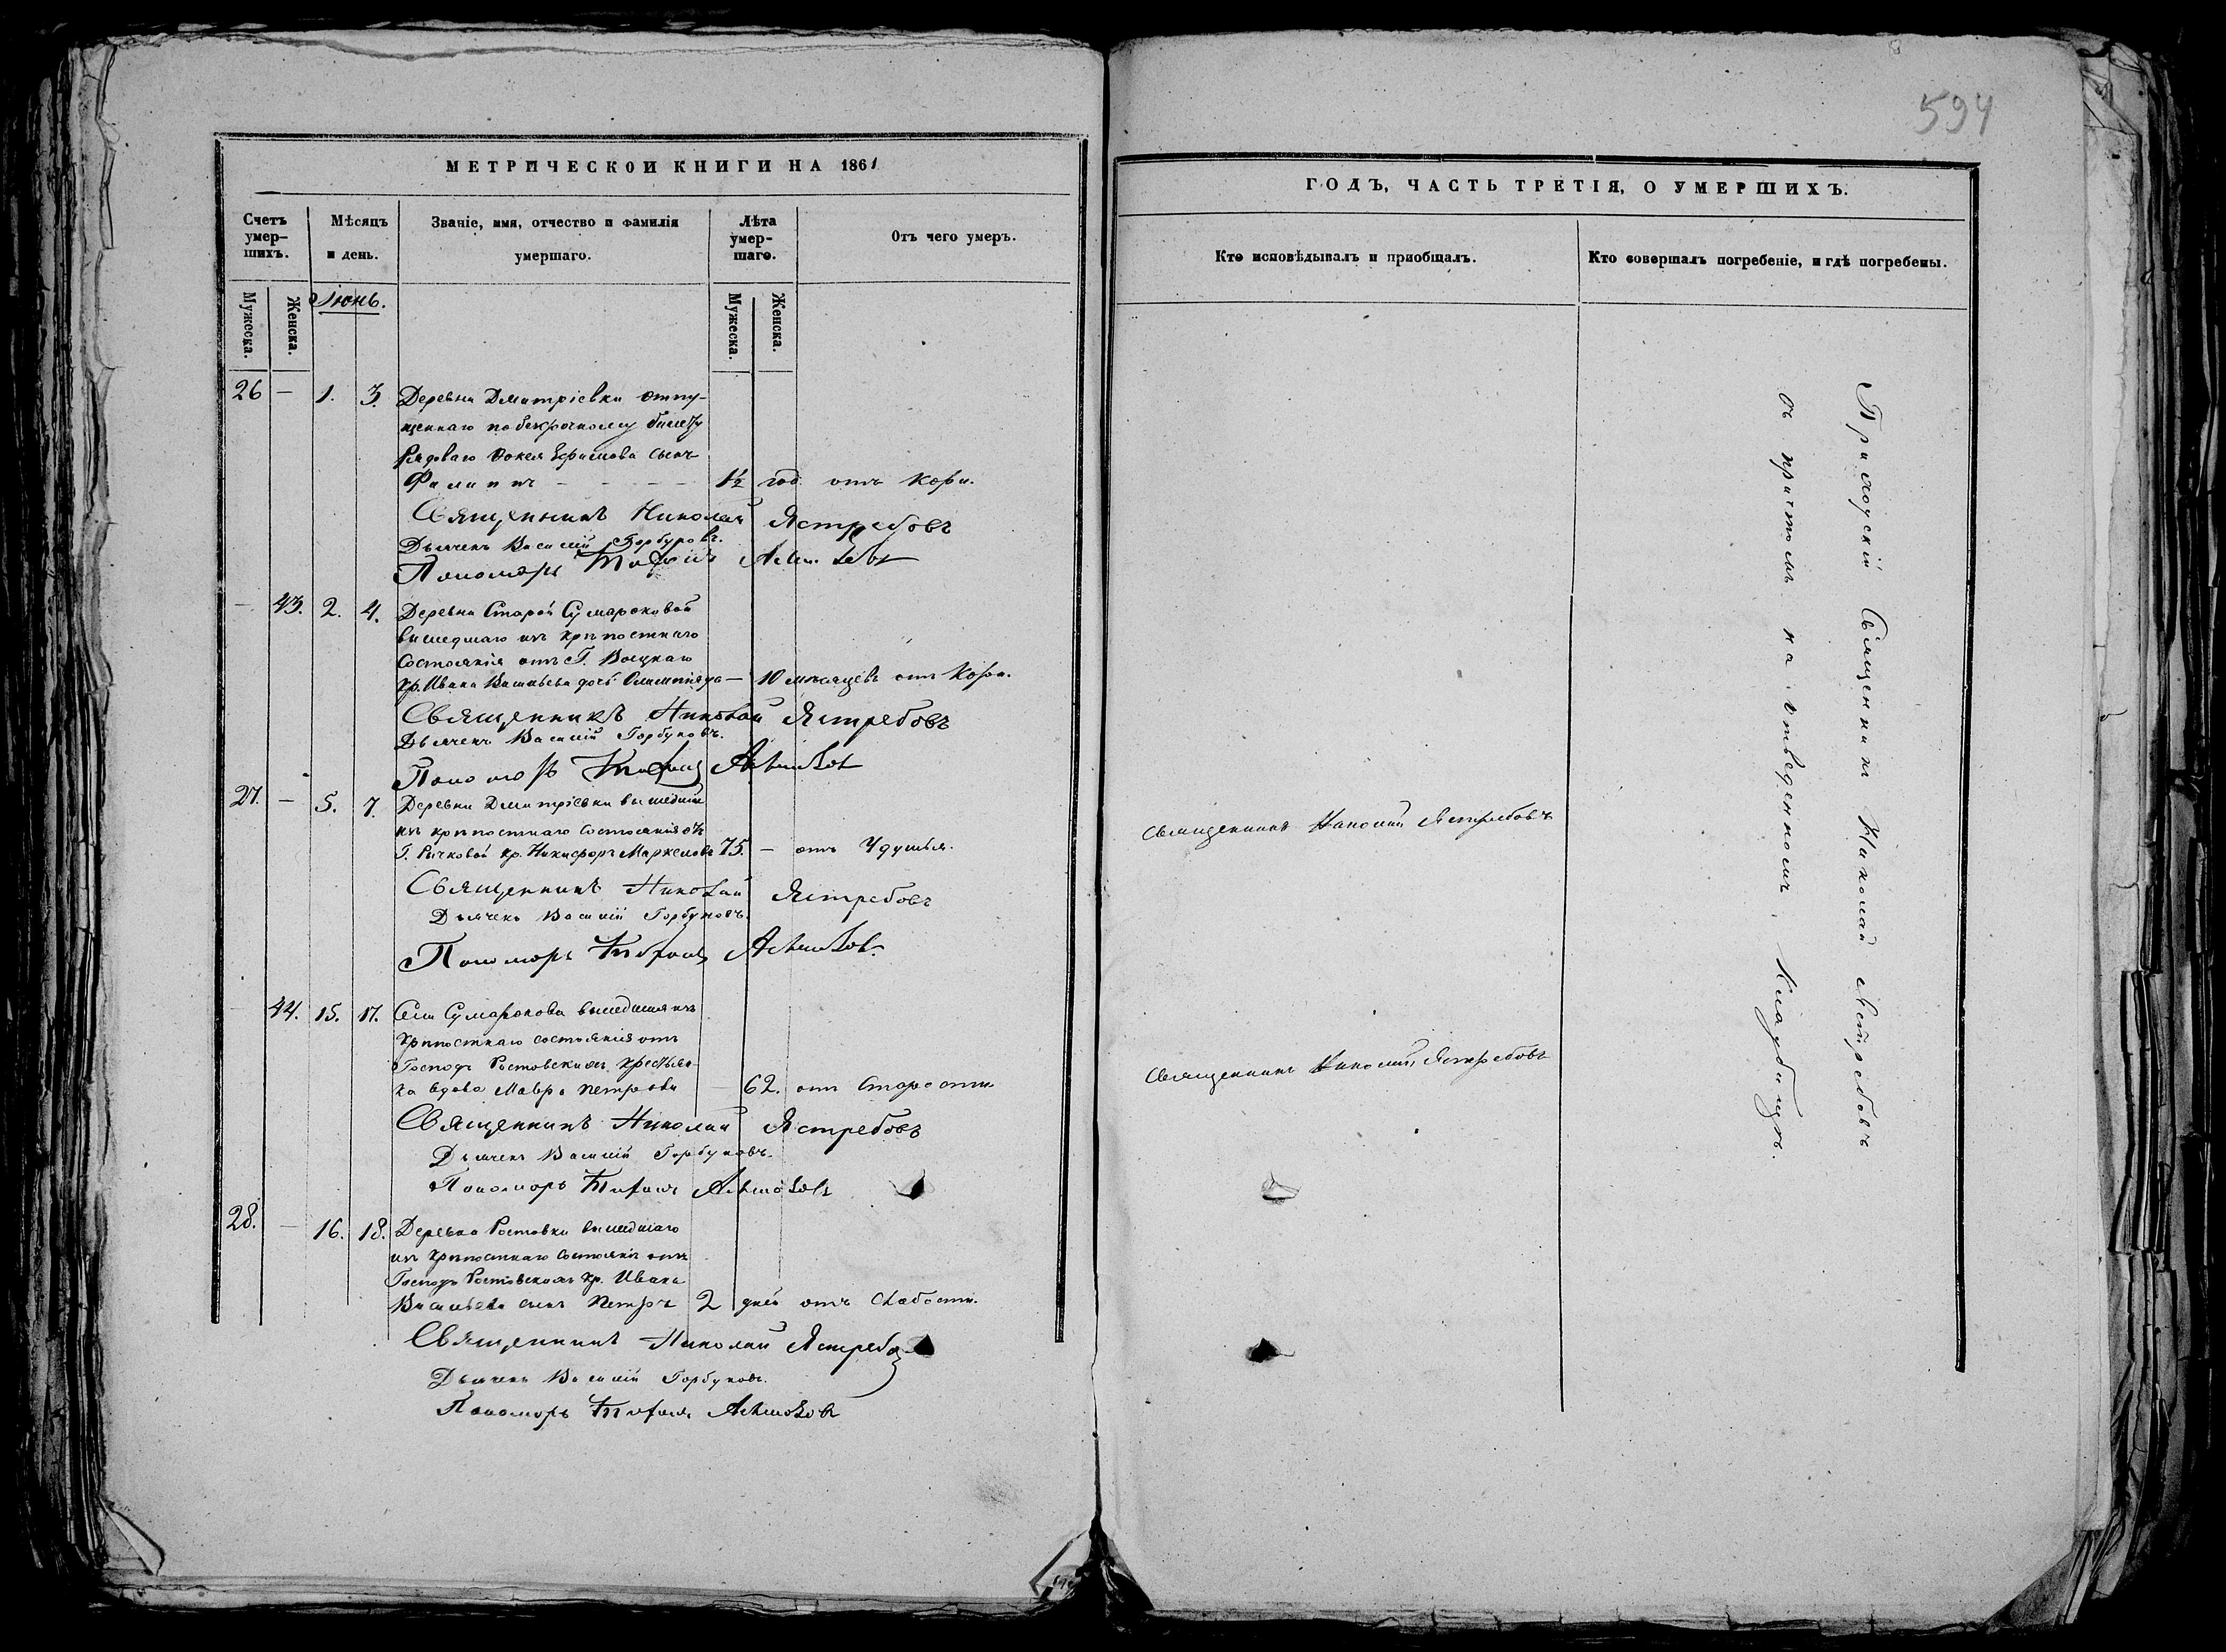 594
МЕТРИЧЕСКОЙ КНИГИ НА 1861
Счетъ умер-шихъ.
Мѣсяцъ и день.
Званіе, имя, отчество и фамилія умершаго.
Лѣта умер-шаго.
Отъ чего умеръ.
Мужеска. Женска. Іюнь. Мужеска. Женска.
26 — 1. 3. Деревни Дмитріевки отпу-
щеннаго по безсрочному билету
Рядоваго Фокея Ефимова сынъ
Филиппъ — — — — 1½ год отъ Кори.
Священникъ Николай Ястребовъ
Дьячекъ Василій Горбуновъ.
Пономарь
— 43. 2. 4. Деревни Старой Сумароковой
вышедшаго изъ крѣпостнаго
состоянія отъ Г.
Кр. Ивана Васильева дочь Олимпіяда — 10 мѣсяцевъ отъ Кори.
Священникъ Николай Ястребовъ
Дьячекъ Василій Горбуновъ.
Пономарь
27. — 5. 7. Деревни Дмитріевки вышедшій
изъ крѣпостнаго состоянія отъ
Г. Рычковой кр. Никифоръ Маркеловъ 75. — отъ Удушья.
Священникъ Николай Ястребовъ
Дьячекъ Василій Горбуновъ.
Пономарь
— 44. 15. 17. Села Сумарокова вышедшая изъ
крѣпостнаго состоянія отъ
Господъ Ростовскихъ крестьян-
ка вдова Мавра Петрова — 62. отъ Старости
Священникъ Николай Ястребовъ
Дьячекъ Василій Горбуновъ.
Пономарь
28. — 16. 18. Деревни Ростовки вышедшаго
изъ крѣпостнаго состоянія отъ
Господъ Ростовскихъ кр. Ивана
Васильева сынъ Петръ 2 дней отъ Слабости.
Священникъ Николай Ястребовъ
Дьячекъ Василій Горбуновъ.
Пономарь
ГОДЪ, ЧАСТЬ ТРЕТІЯ, О УМЕРШИХЪ.
Кто исповѣдывалъ и пріобщалъ.
Кто совершалъ погребеніе, и гдѣ погребены.
Священникъ Николай Ястребовъ
Священникъ Николай Ястребовъ
Приходскій Священникъ Николай Ястребовъ
съ причтомъ на отведенномъ Кладбищѣ.